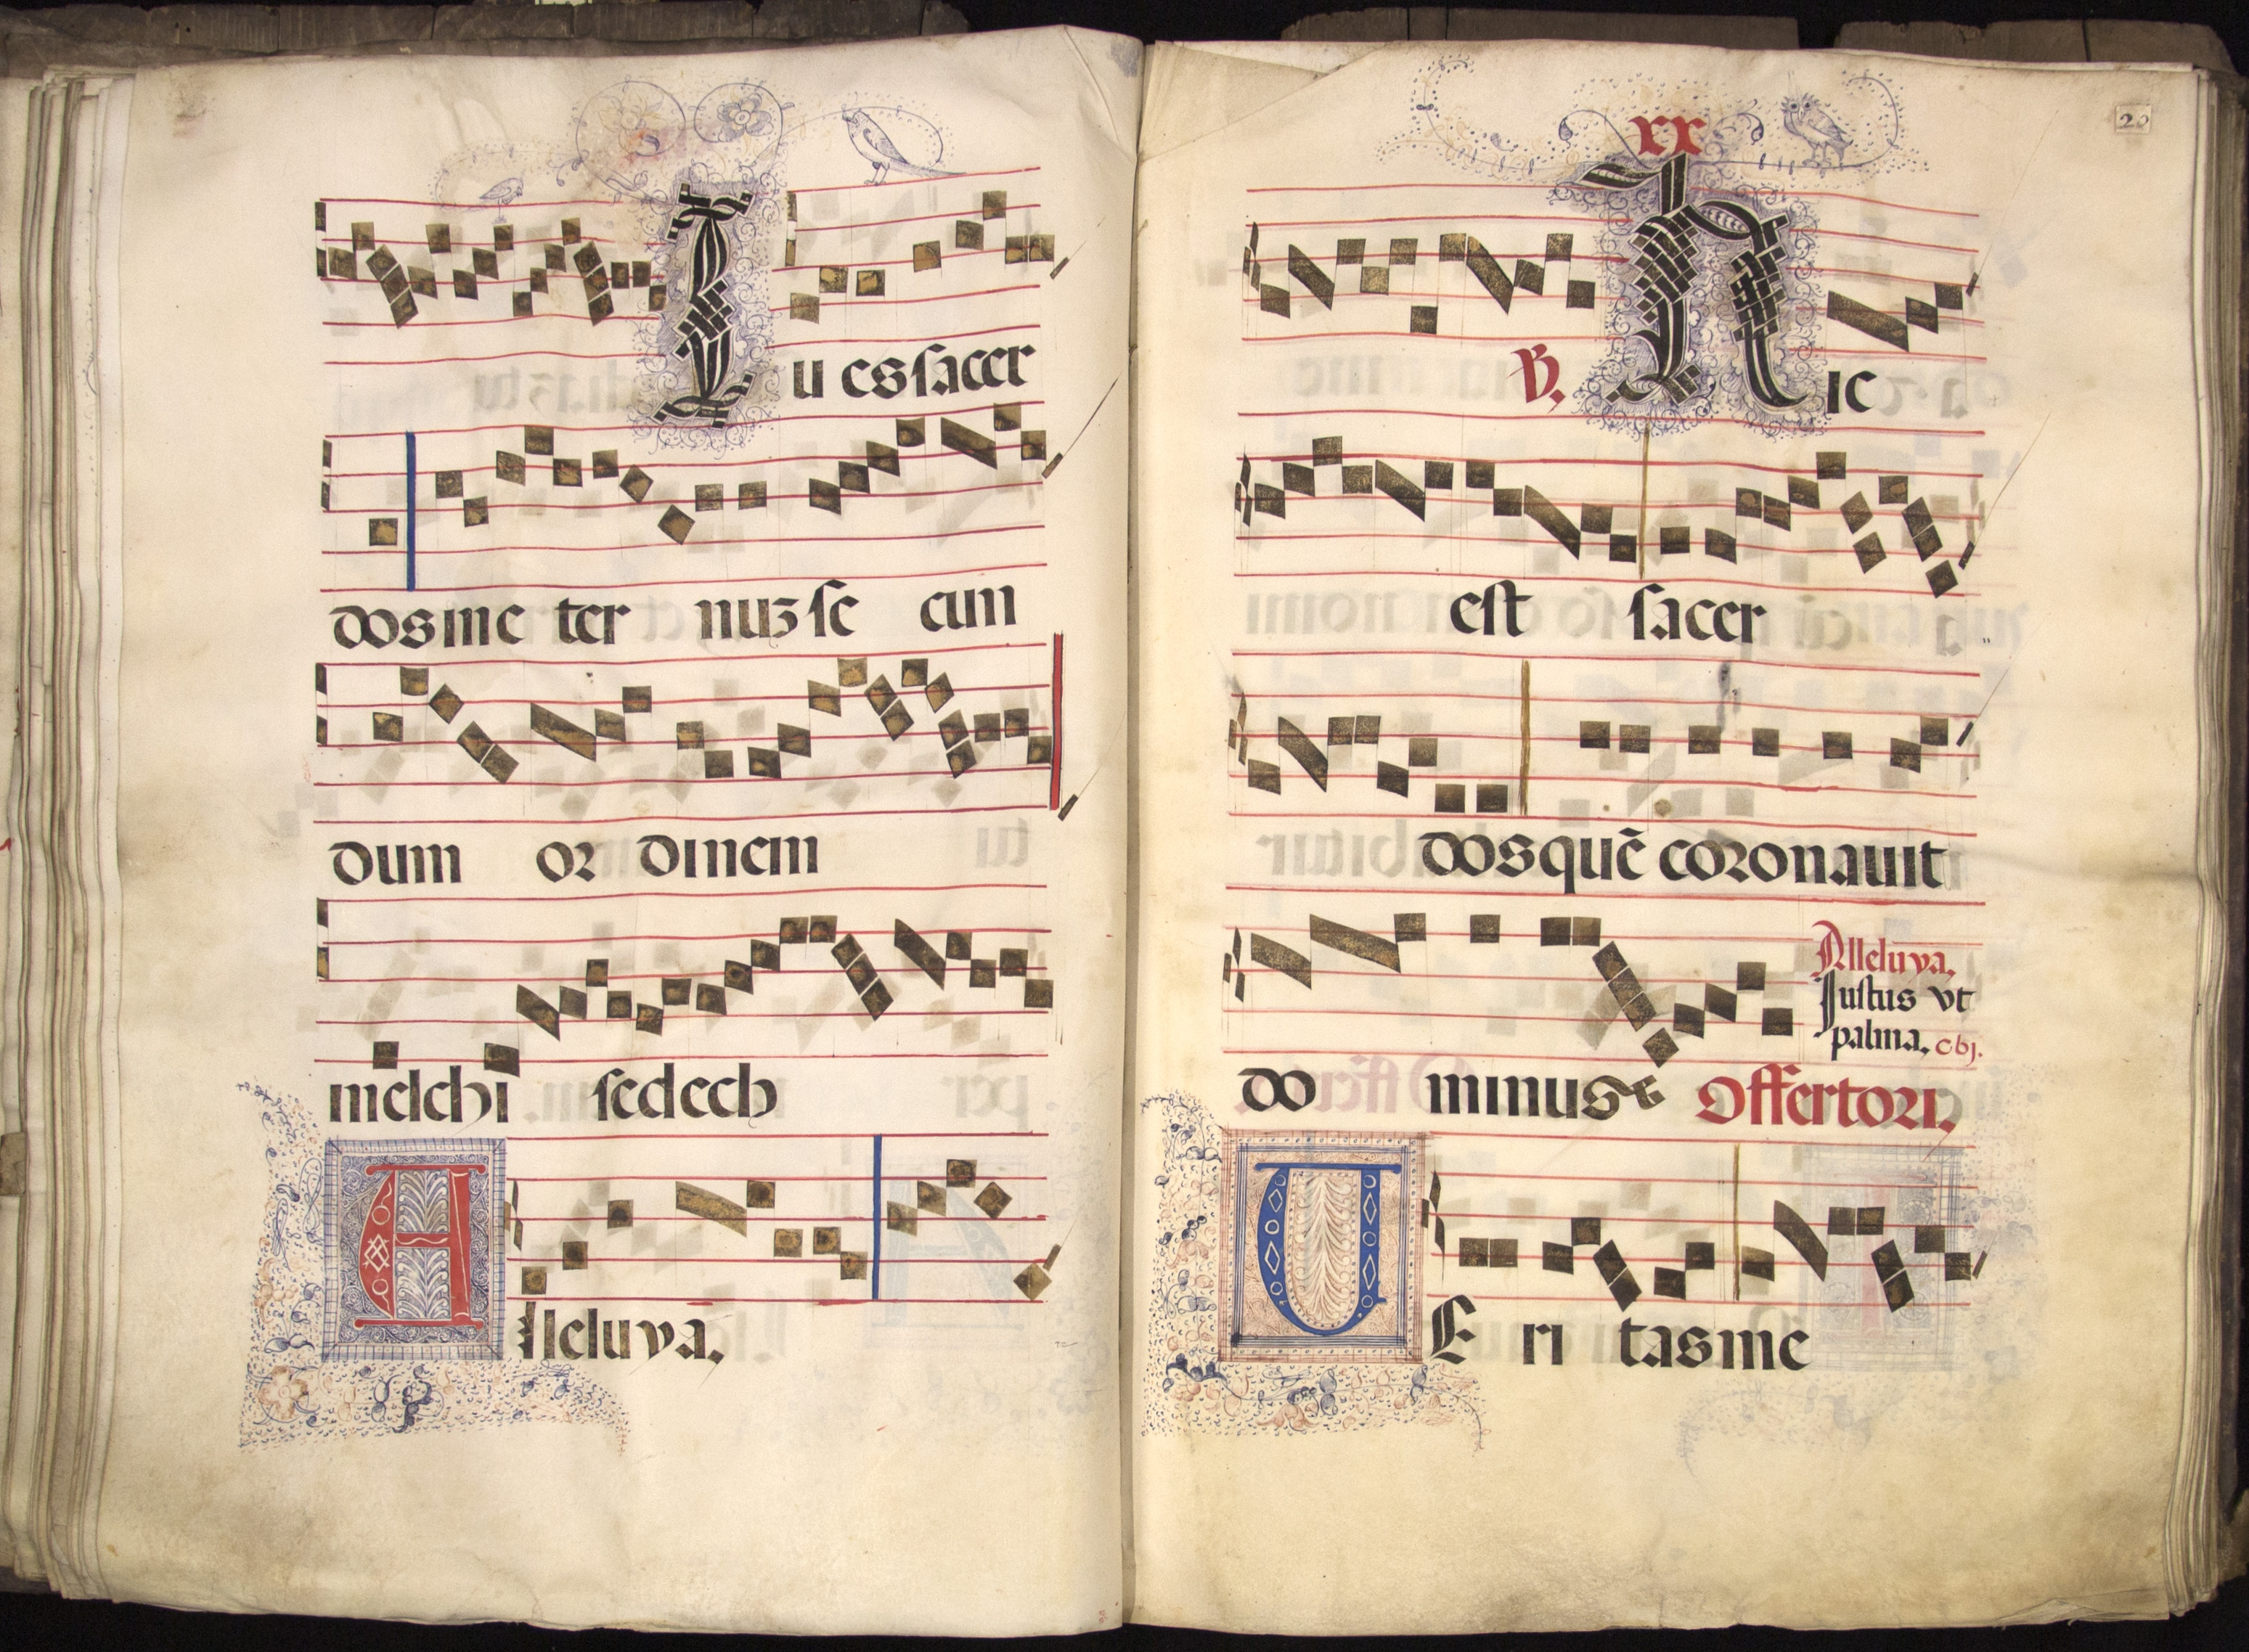 Tu es sacer
dos in e ter nuz se cun
dum or dinem
melchi sedech
Alleluya.
xx
20
V. Hic
est sacer
dos quē coronauit
Alleluya.
Iustus vt
palma. cbj.
do minus Offertori.
VE ri tas me